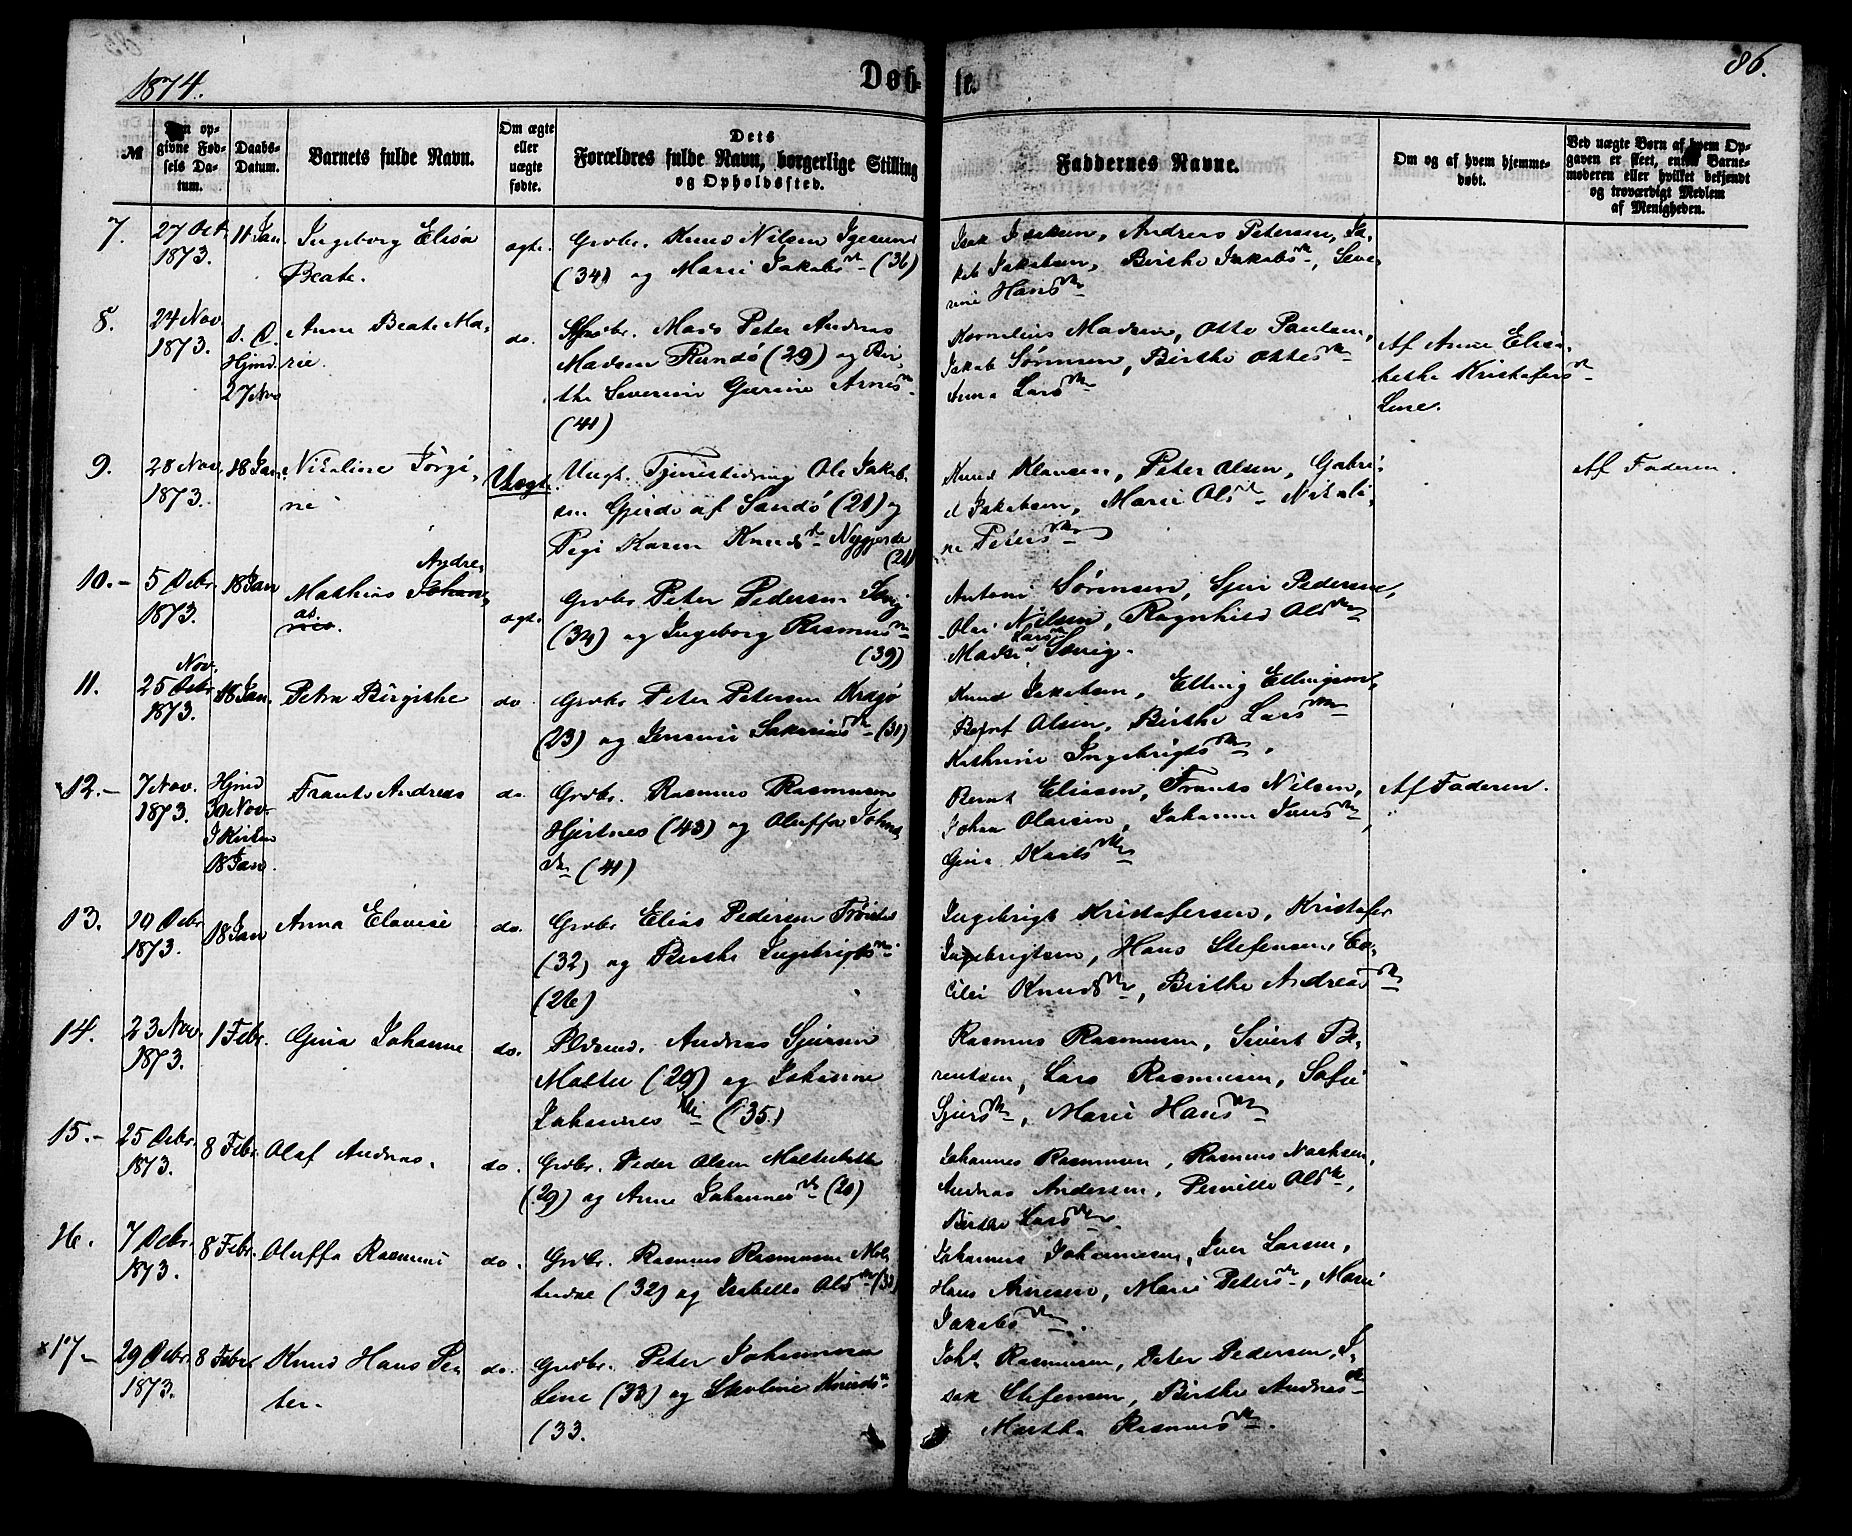 1874.
Døb-
te.
86.
№
Den op-
givne Fød-
sels Da-
tum.
Daabs-
Datum.
Barnets fulde Navn.
Om ægte
eller
uægte
fødte.
Dets
Forældres fulde Navn, borgerlige Stilling
og Opholdssted.
Faddernes Navne.
Om og af hvem hjemme-
døbt.
Ved uægte Børn af hvem Op-
gaven er skeet, enten Barne-
moderen eller hvilket bekjendt
og troværdigt Medlem
af Menigheden.
7.
27 Oct.
1873.
11 Jan.
Ingeborg Elisa
Beate.
ægt.
Grbr. Knud Nilsen Igesund
(34) og Marie Jakobs dr (36)
Isak Isaksen, Andreas Petersen, Ja-
kob Jakobsen, Birthe Jakobs dr, Seve-
rine Hans dr
8.
24 Nov.
1873.
s. D.
Hjmd
27 Nov
Anne Beate Ma-
rie.
do.
Mads Peter Andreas
Madsen Rundø (29) og Bir-
the Severine Gurine Arnes dr
(41)
Kornelius Madsen, Otto Paulsen,
Jakob Sørensen, Birthe Ottes dr
Anna Lars dr
Af Anne Elisa-
bethe Kristofers dr
Leine.
9.
28 Nov.
1873.
18 Jan.
Nikoline Jørgi-
ne
Uægte.
Ungk. Tjenestedreng Ole Jakob-
sen Gjerde af Sandø (21) og
Pige Karen Knuds dr Nygjerde
(21)
Knud Klausen, Peter Olsen, Gabri-
el Jakobsen, Marie Ols dr Nikoli-
ne Peters dr
Af Faderen.
10.-
5 Debr.
1873.
18 Jan
Andre-
Mathias Johan-
as
nes.
ægt.
Grbr Peter Pedersen Sævig
(34) og Ingeborg Rasmus dr
(39)
Antoni Sørensen, Sjur Pedersen,
Olai Nilsen, Ragnhild Ols dr
Lars dr
Madsi Sævig.
11.
Nov.
25 Debr
1873.
18 Jan.
Petra Birgitthe
do
Grbr Peter Petersen Kragjø
(23) og Jensine Sakarias dr (31)
Knud Jakobsen, Elling Ellingsen,
Olsen, Birthe Lars dr
Kathrine Ingebrigts dr.
×12.-
7 Nov.
1873.
Hjmd
30 Nov.
I Kirken
18 Jan.
Frants Andreas
do.
Grbr. Rasmus Rasmussen
Hjertnes (43) og Oluffa Johns
dr (41)
Bernt Eliasen, Frants Nilsen,
Johan Olavsen, Johanne Iver dr
Gina Karls dr
Af Faderen.
13.
19 Debr
1873.
18 Jan
Anna Elovise
do.
Grbr Elias Pedersen
(32) og Birthe Ingebrigts dr
(26)
Ingebrigt Kristofersen, Kristofer
Ingebrigtsen, Hans Stefensen, Ce-
cilei Knuds dr, Birthe Andreas dr
14.
23 Nov.
1873.
1 Febr.
Gina Johanne
do.
Andreas Sjursen
Molter (29) og Johanne
Johannes dr (35.)
Rasmus Rasmussen, Sivert Be-
rentsen, Lars Rasmussen, Sofie
Sjurs dr, Marie Hans dr
15.-
25 Debr.
1873.
8 Febr.
Olaf Andreas.
do.
Grbr. Peder Olsen
(29) og Anne Johannes dr (20)
Johannes Rasmussen, Rasmus
Andreas Andersen, Pernille Ols dr,
Birthe Lars dr.
16.
7 Debr.
1873.
8 Febr.
Oluffa Rasmine
do.
Grbr. Rasmus Rasmussen
(32) og Isabella Ols dr (33)
Johannes Johannesen, Iver Larsen,
Hans Arnesen, Marie Peters dr, Marie
Jakobs dr.
×17-
29 Debr.
1873.
8 Febr
Knud Hans Pe-
ter.
do.
Grbr. Peter Johannesen
Leine (33) og Knuds dr
(33.
Rasmussen, Peter Pedersen, I-
sak Stefensen, Birthe Andreas dr
Martha Rasmus dr.